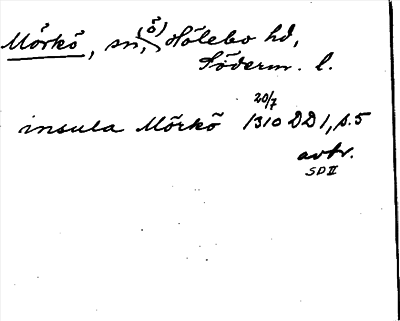 Mörkö, sn, (ö) Hölebo hd,
Söderm. l.
insula Mörkö 20/7 1310 DD 1, s. 5
avtr.
SD II